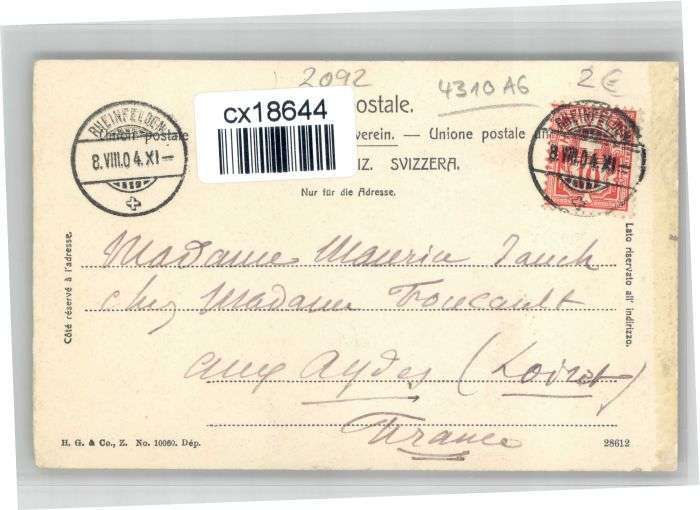 2092
4310 A6
2 €
cx18644
postale.
Union postale
verein. — Unione postale un
IZ. SVIZZERA.
Nur für die Adresse.
RHEINFELDEN
8.VIII.04.XI–
RHEINFELDEN
8.VIII.04.XI–
10
Côté réservé à l'adresse.
Lato riservato all' indirizzo.
Madame Maurice
chez Madame Foucault
aux Aydes (Loiret)
France
H. G. & Co., Z. No. 10060. Dép.
28612